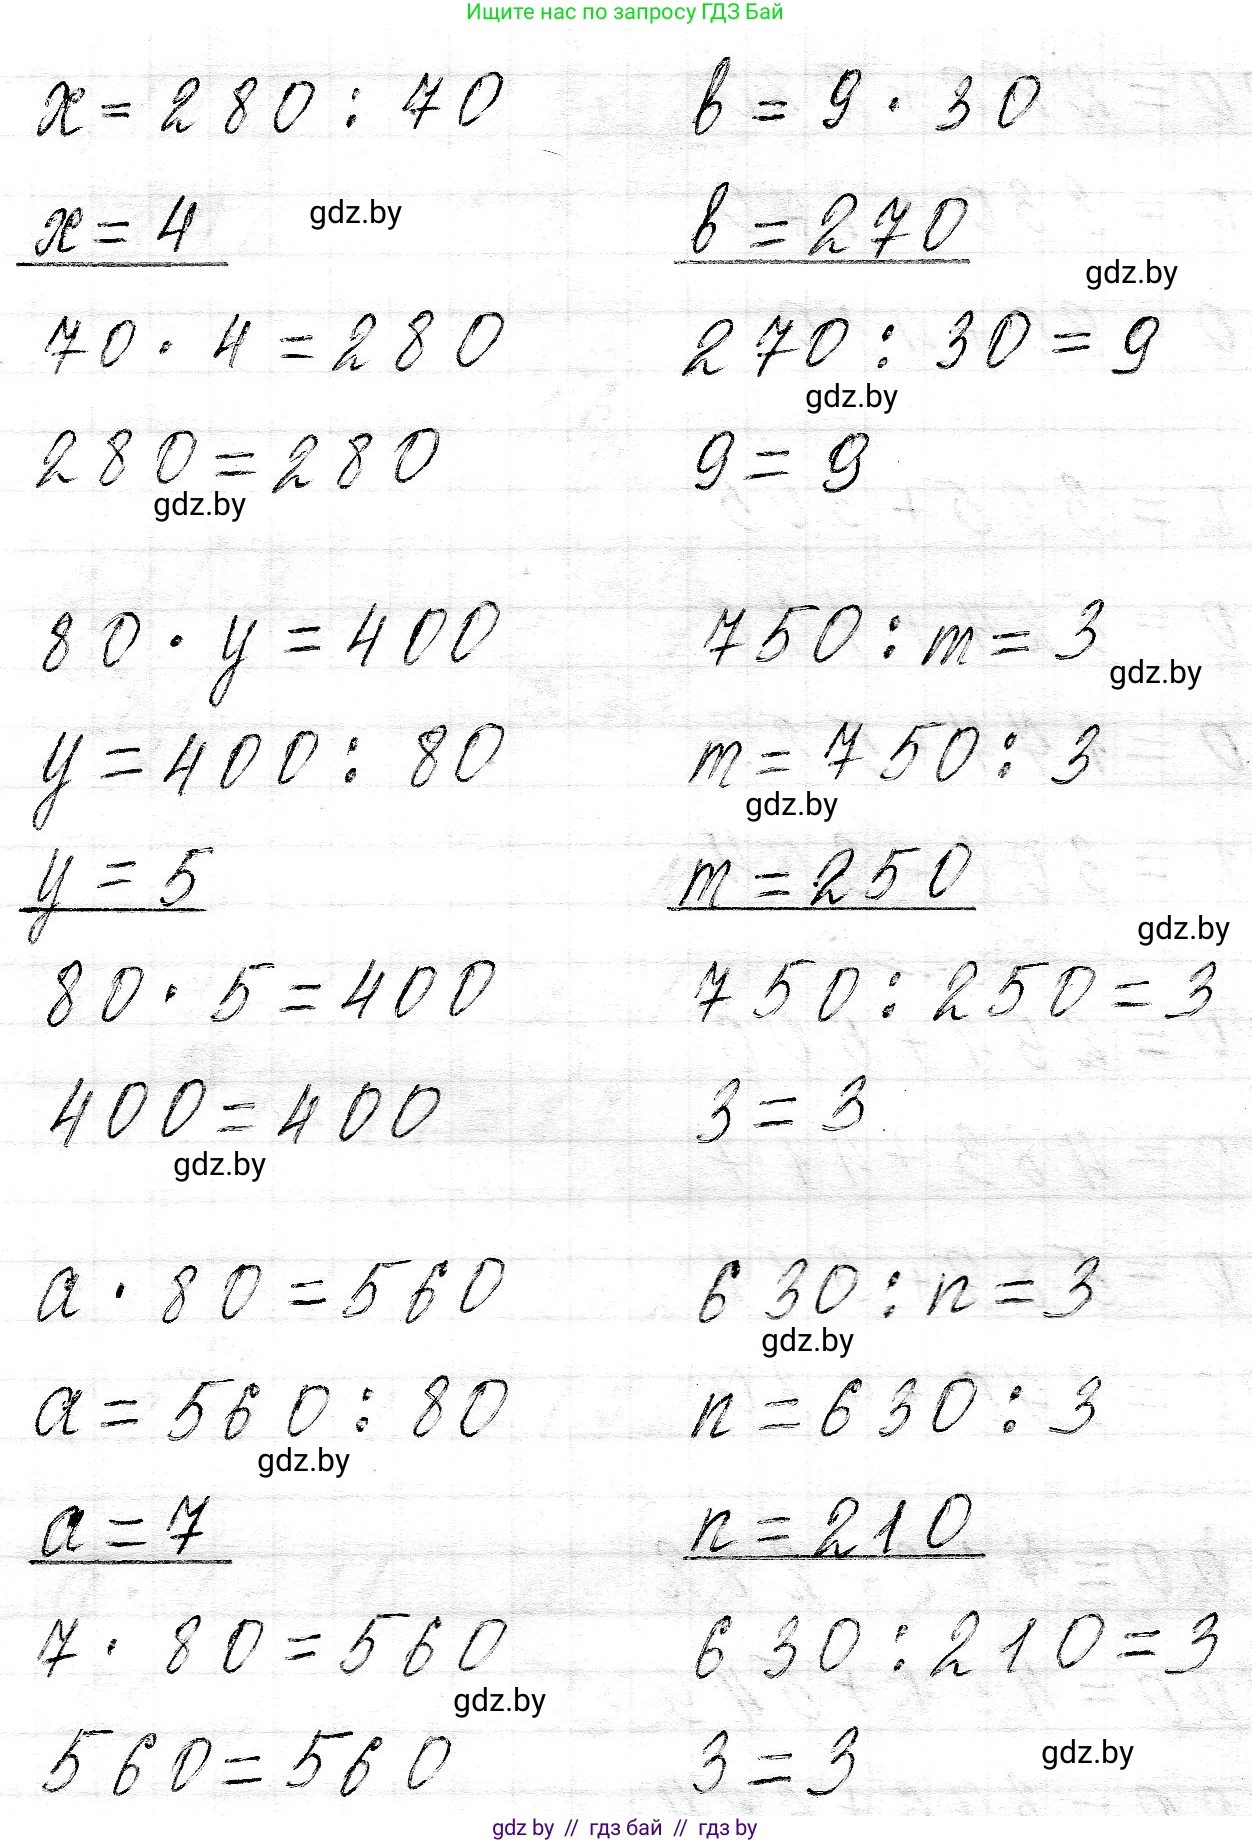 Ищите нас по запросу ГДЗ Бай
x = 280 : 70
x = 4
gdz.by
70 · 4 = 280
280 = 280
gdz.by
80 · y = 400
y = 400 : 80
y = 5
80 · 5 = 400
400 = 400
gdz.by
a · 80 = 560
a = 560 : 80
gdz.by
a = 7
7 · 80 = 560
gdz.by
560 = 560
b = 9 · 30
b = 270
gdz.by
270 : 30 = 9
gdz.by
9 = 9
750 : m = 3
gdz.by
m = 750 : 3
gdz.by
m = 250
gdz.by
750 : 250 = 3
3 = 3
630 : n = 3
gdz.by
n = 630 : 3
n = 210
630 : 210 = 3
3 = 3
gdz.by
gdz by // гдз бай // гдз by